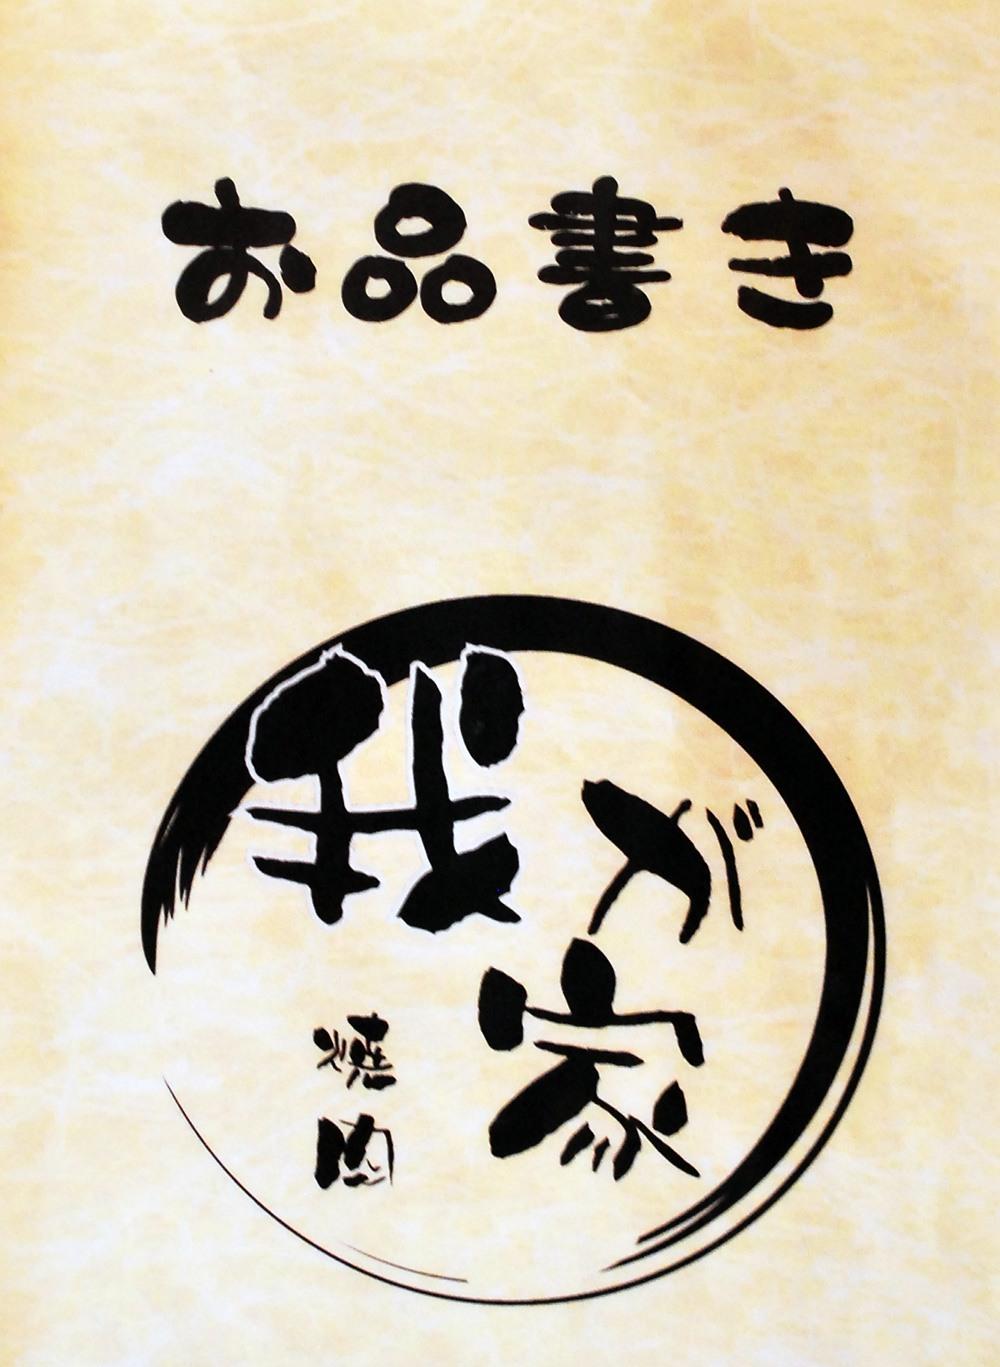 お品書き
我が家
焼肉